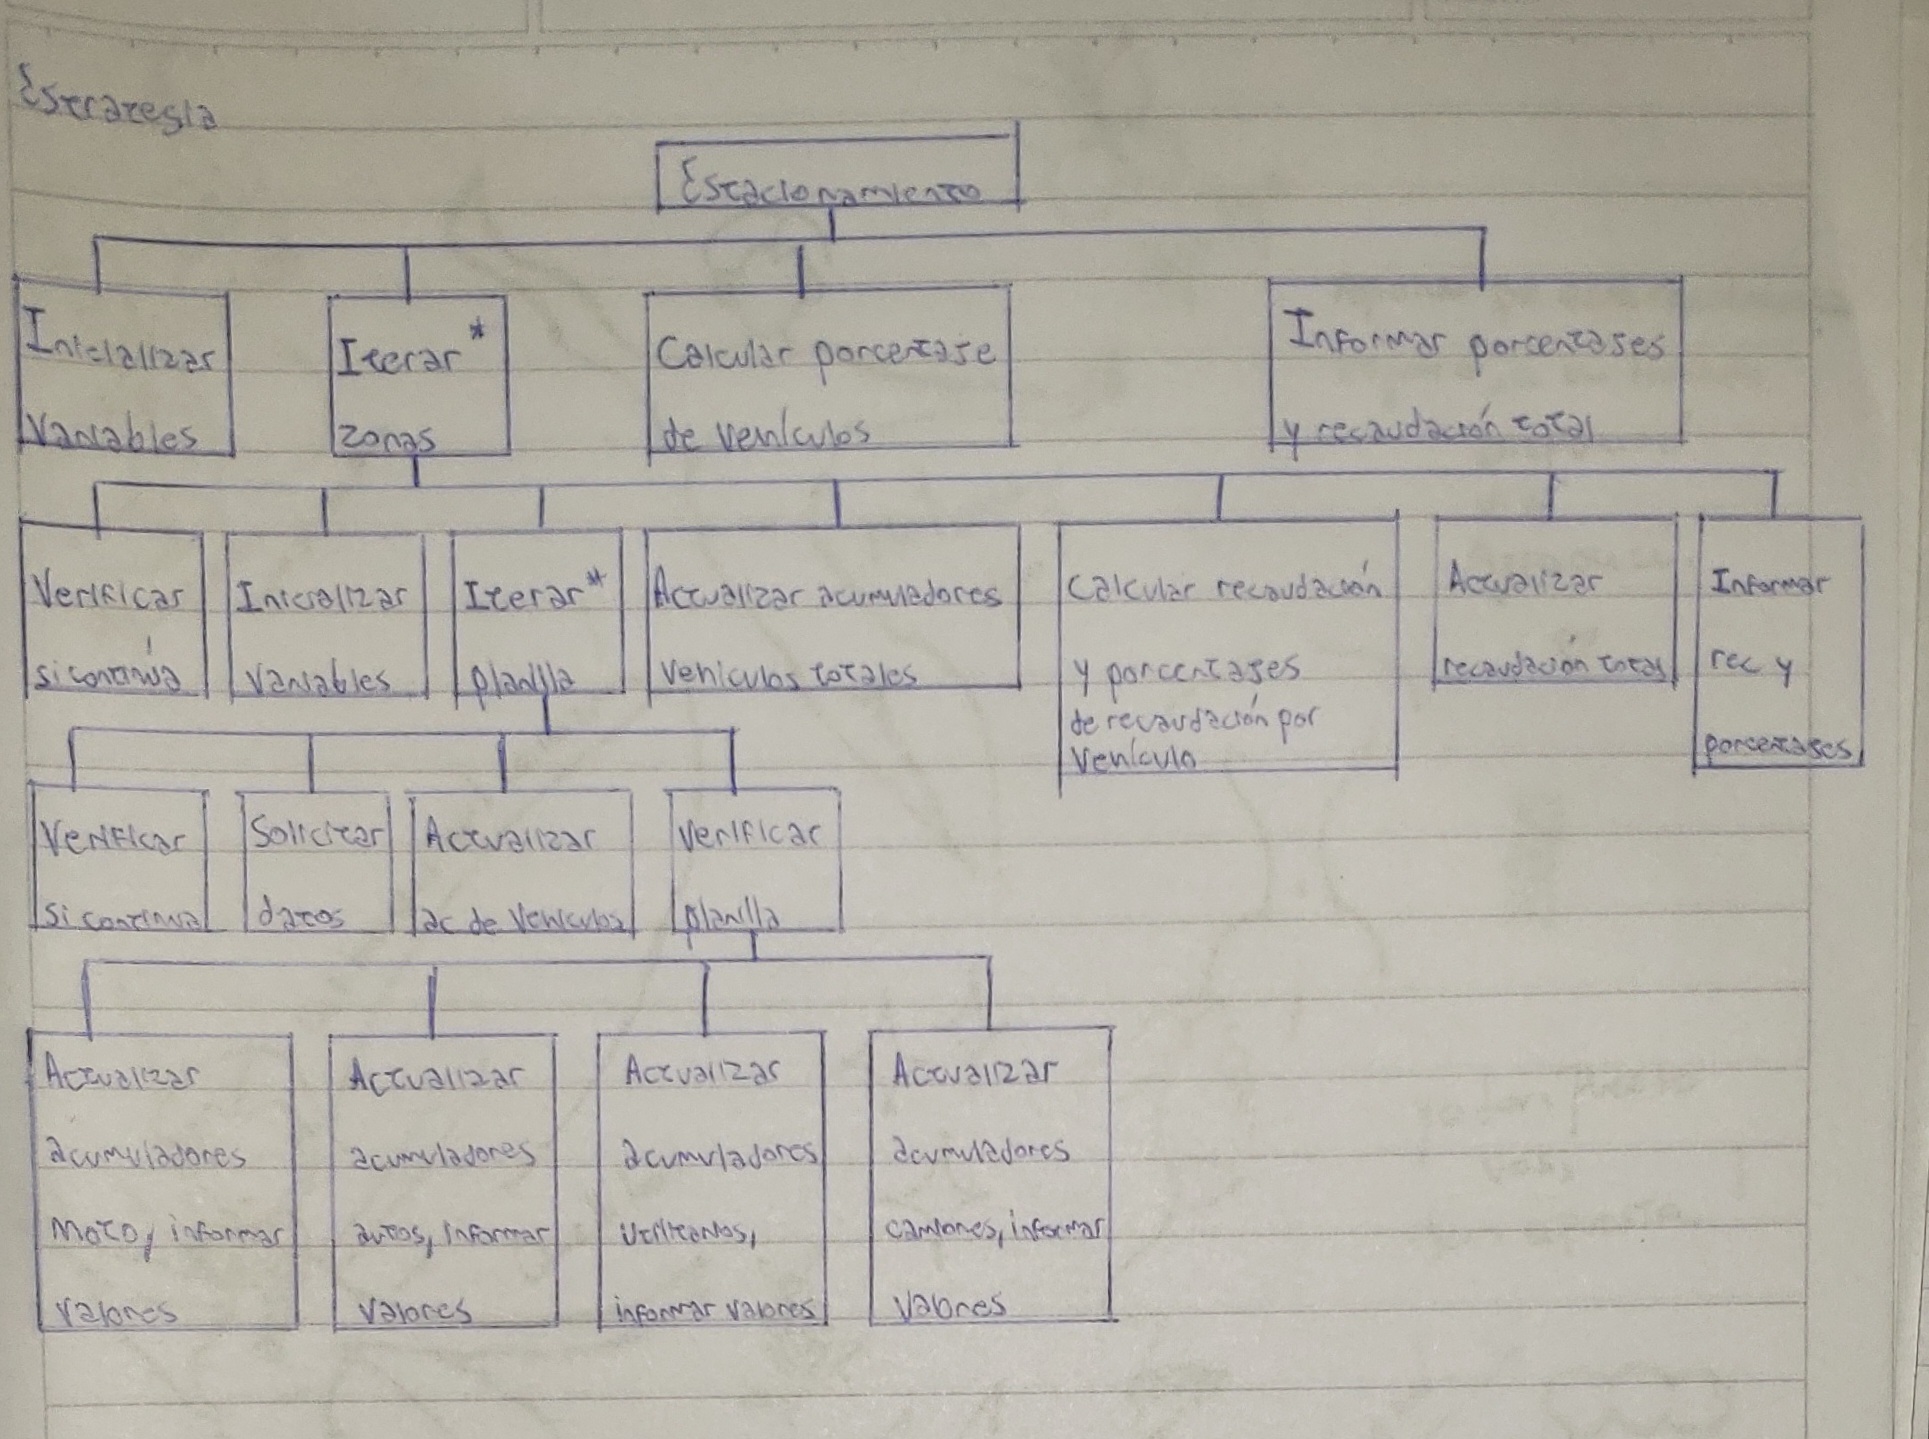 Estrategia
Estacionamiento
Inicializar
Variables
Iterar*
zonas
Calcular porcentaje
de vehículos
Informar porcentajes
y recaudación total
Verificar
si continúa
Inicializar
Variables
Iterar*
planilla
Actualizar acumuladores
vehículos totales
Calcular recaudación
y porcentajes
de recaudación por
vehículo
Actualizar
recaudación total
Informar
rec y
porcentajes
Verificar
si continua
Solicitar
datos
Actualizar
ac de vehículos
Verificar
planilla
Actualizar
acumuladores
Moto, informar
valores
Actualizar
acumuladores
autos, informar
valores
Actualizar
acumuladores
utilitarios,
informar valores
Actualizar
acumuladores
camiones, informar
valores